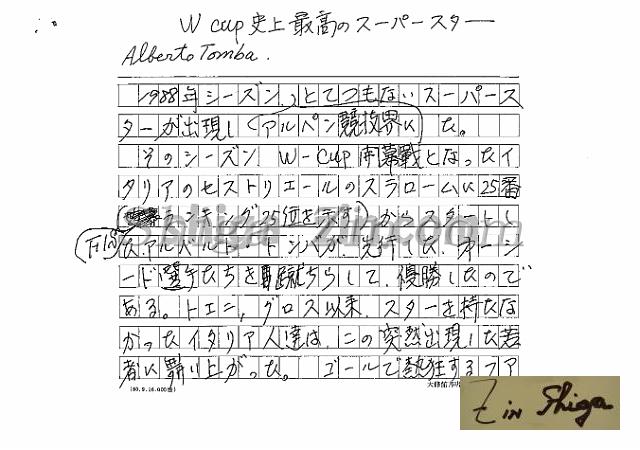 W cup 史上最高のスーパースター
Alberto Tomba.
1988年シーズン、とてつもないスーパース
ターが出現し(アルペン競技界に)た。
そのシーズン W-Cup開幕戦となったイ
タリアのセストリエールのスラロームに25番
ランキング25位を示す)からスタートし
たアルベルト・トンバが、先行した、
ード選手たちを蹴ちらして、優勝したので
ある。トエニ、グロス以来、スターを持たな
かったイタリア人達は、この突然出現した若
者に舞い上がった。 ゴールで熱狂するファ
Shiga Zin.com
Z in Shiga